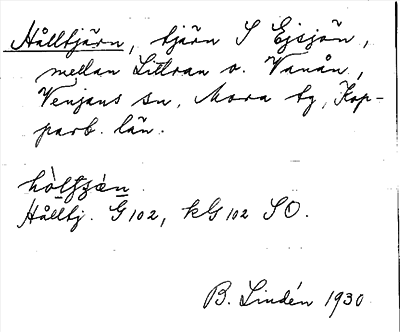 Hålltjärn, tjärn S Ejsjön,
mellan Littran o. Vanån,
Venjans sn, Mora tg, Kop-
parb. län.
Hålltj. G 102, kG 102 SO.
B. Lindén 1930